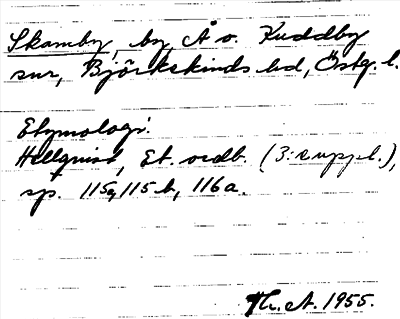 Skamby, by, Å o. Kuddby
snr, Björkekinds hd, Östg. l.
Etymologi:
Hellquist, Et. ordb. (3:e uppl.),
sp. 115a, 115b, 116a.
Th. A. 1955.